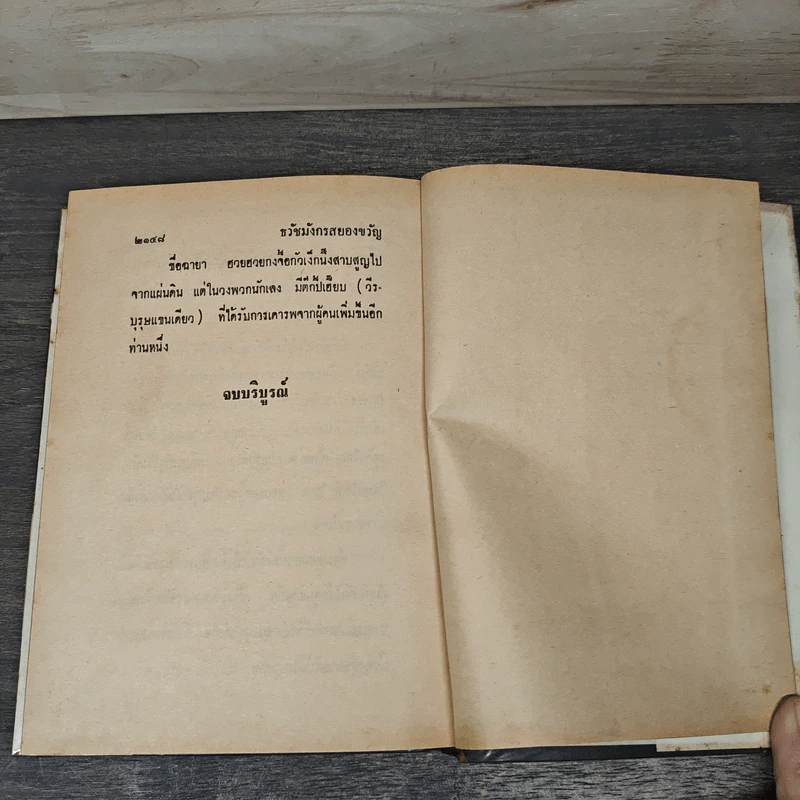 ๒๑๔๘ ธวัชมังกรสยองขวัญ
ชื่อฉายา ฮวยฮวยกงจื้อกัวเง็กนั้งสาบสูญไป
จากแผ่นดิน แต่ในวงพวกนักเลง มีตึกป์เฮียบ (วีร-
บุรุษแขนเดียว) ที่ได้รับการเคารพจากผู้คนเพิ่มขึ้นอีก
ท่านหนึ่ง
จบบริบูรณ์